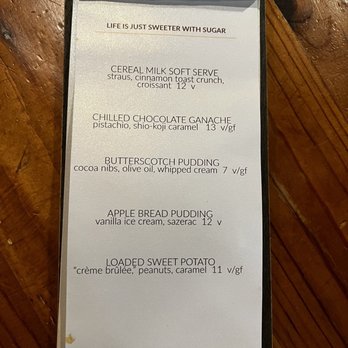 LIFE IS JUST SWEETER WITH SUGAR
CEREAL MILK SOFT SERVE
straus, cinnamon toast crunch,
croissant 12 v
CHILLED CHOCOLATE GANACHE
pistachio, shio-koji caramel 13 v/gf
BUTTERSCOTCH PUDDING
cocoa nibs, olive oil, whipped cream 7 v/gf
APPLE BREAD PUDDING
vanilla ice cream, sazerac 12 v
LOADED SWEET POTATO
"crème brûlée," peanuts, caramel 11 v/gf